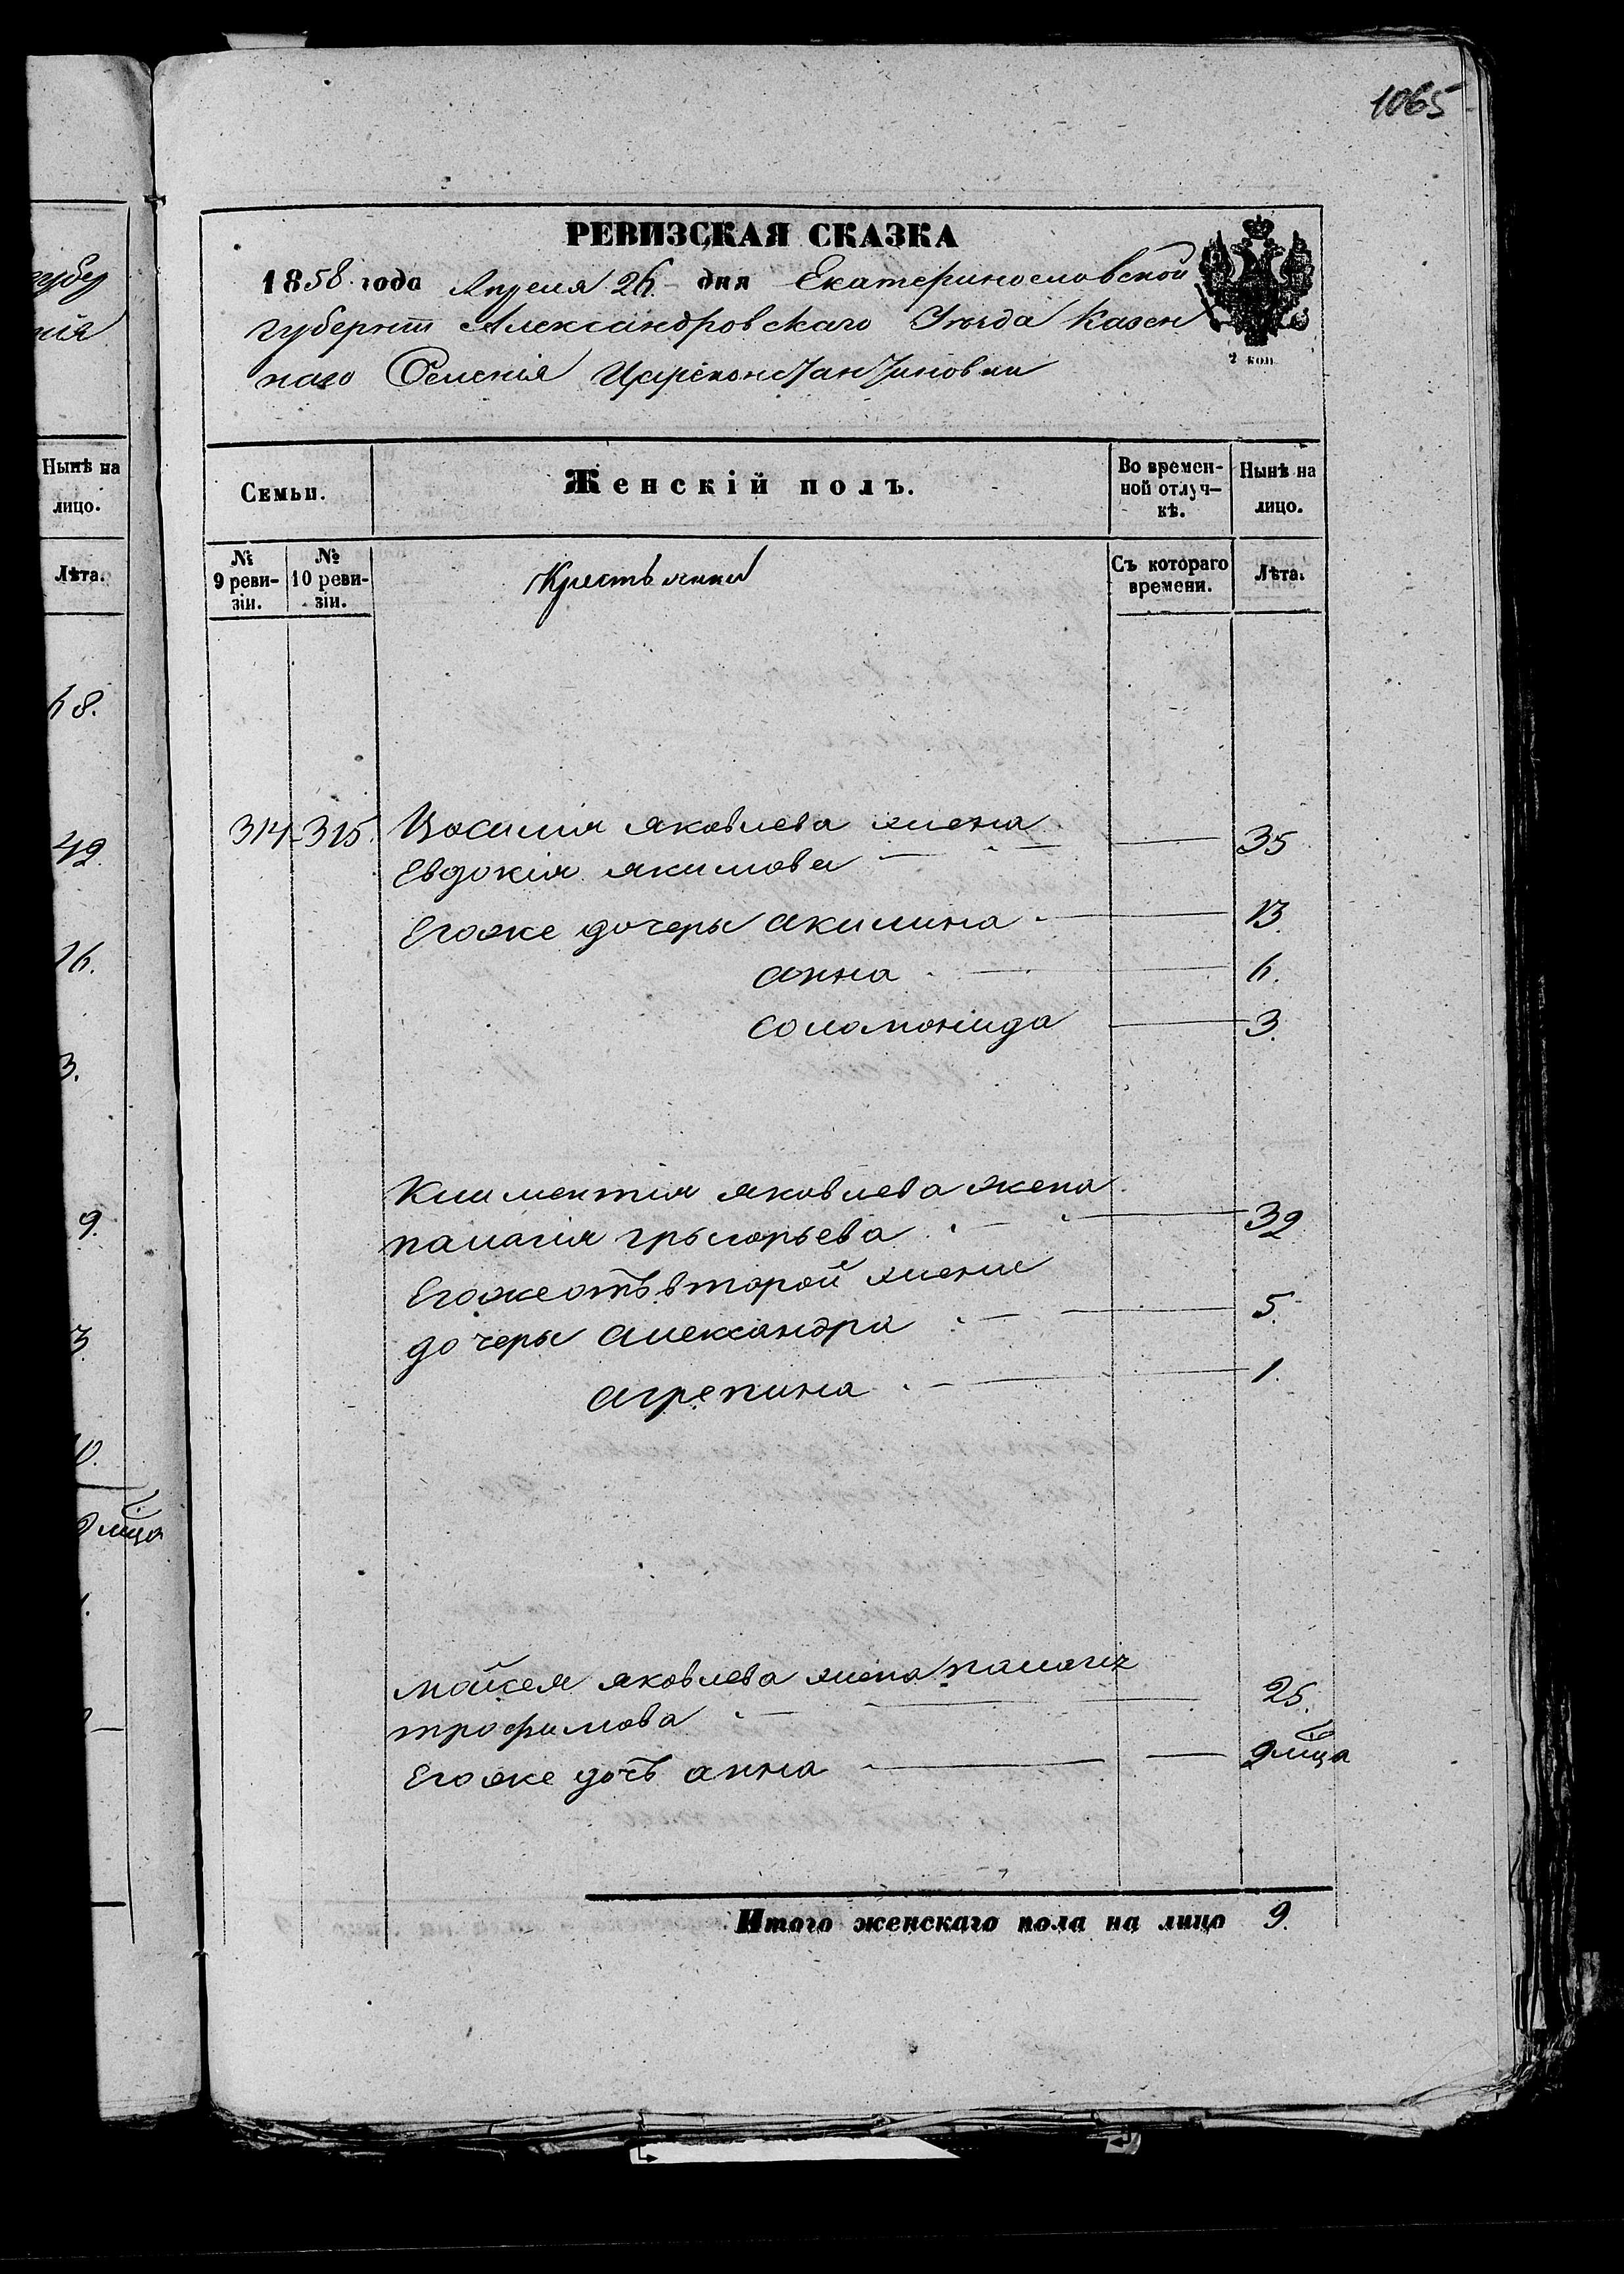 1065
РЕВИЗСКАЯ СКАЗКА
1858 года Апреля 26 дня Екатеринославской
губернiи Александровскаго Уѣзда Казен
наго Селенiя Цареконстантиновки
2 коп
Семьи.
Женскiй полъ.
Во времен-
ной отлуч-
кѣ.
Нынѣ на
лицо.
№
9 реви-
зiи.
№
10 реви-
зiи.
Крестьянки
Съ котораго
времени.
Лѣта.
314 315. Василия яковлева жена
Евдокiя якимова 35
Егоже дочеры акилина 13.
анна 6.
соломонида 3.
Климентия яковлева жена
палагiя грыгорьева 32
Егоже отъ второй жены
дочеры александра 5.
агрепина 1.
мойсея яковлева жена палагiя
трофимова 25.
Егоже дочь анна 9 мца
Итого женскаго пола на лицо 9.
Нынѣ на
лицо.
Лѣта.